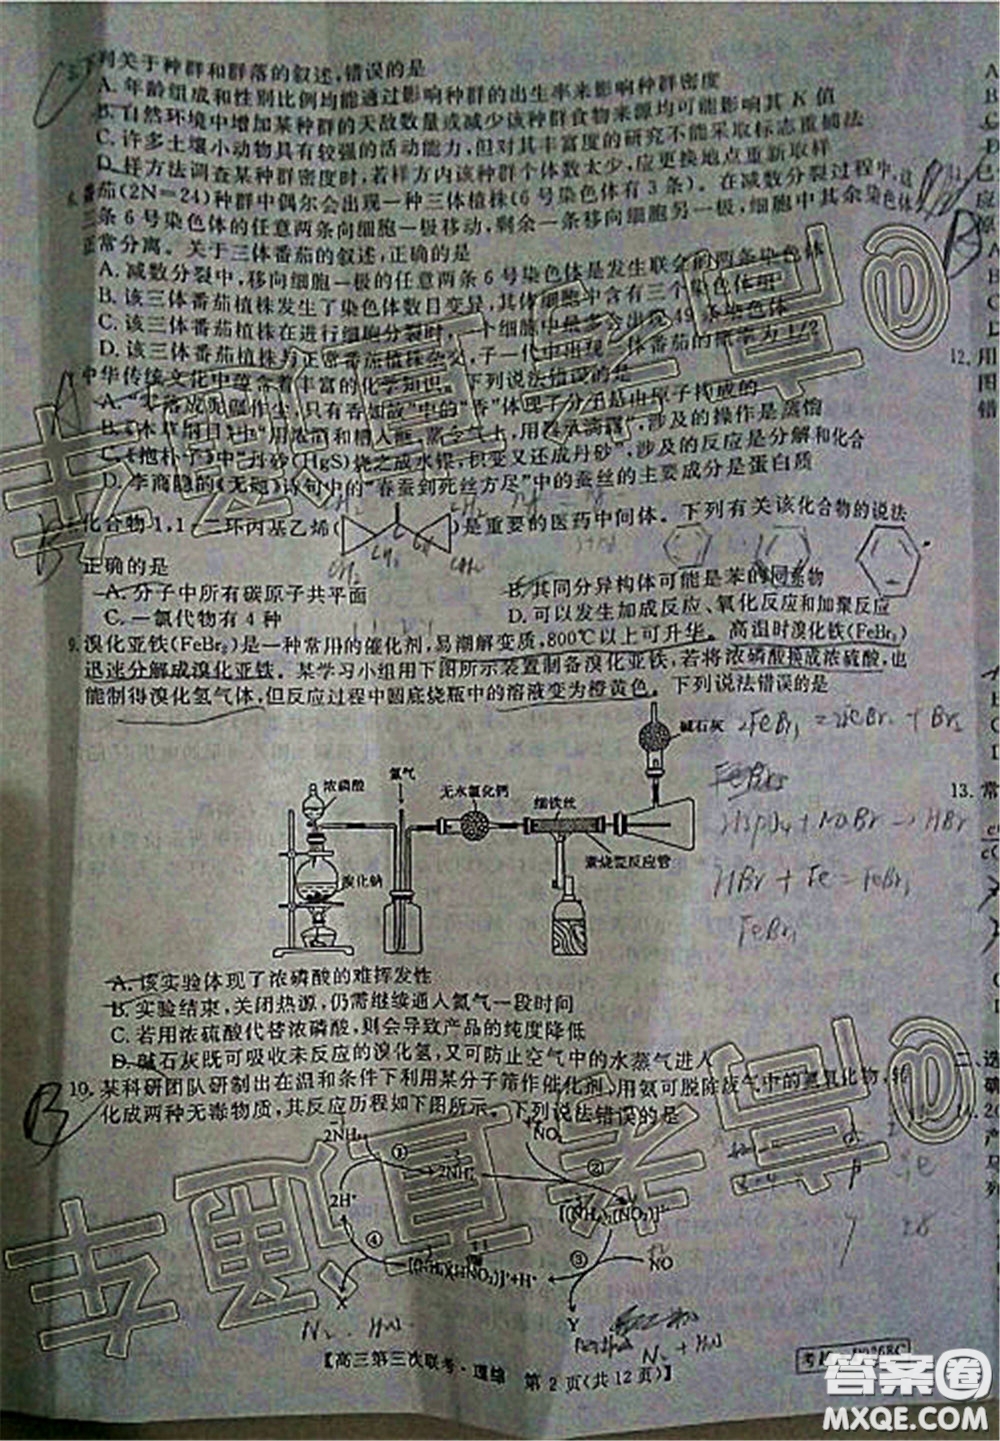 下列关于种群和群落的叙述,错误的是
A. 年龄组成和性别比例均能通过影响种群的出生率来影响种群密度
B. 自然环境中增加某种群的天敌数量或减少该种群食物来源均可能影响其 K 值
C. 许多土壤小动物具有较强的活动能力,但对其丰富度的研究不能采取标志重捕法
D. 样方法调查某种群密度时,若样方内该种群个体数太少,应更换地点重新取样
(2N=24)种群中偶尔会出现一种三体植株(6号染色体有3条)。在减数分裂过程中,这
三条6号染色体的任意两条向细胞一极移动,剩余一条移向细胞另一极,细胞中其余染色体
正常分离。关于三体番茄的叙述,正确的是
A. 减数分裂中,移向细胞一极的任意两条6号染色体是发生联会的两条染色体
B. 该三体番茄植株发生了染色体数目变异,其体细胞中含有三个染色体组
C. 该三体番茄植株在进行细胞分裂时,一个细胞中最多会出现49条染色体
D. 该三体番茄植株与正常番茄植株杂交,子一代中出现三体番茄的概率为1/2
中华传统文化中蕴含着丰富的化学知识。下列说法错误的是
A. “零落成泥碾作尘,只有香如故”中的“香”体现了分子是由原子构成的
B.《本草纲目》中“用浓酒和糟入甑,蒸令气上,用器承滴露”,涉及的操作是蒸馏
C.《抱朴子》中“丹砂(HgS)烧之成水银,积变又还成丹砂”,涉及的反应是分解和化合
D. 李商隐的《无题》诗句中的“春蚕到死丝方尽”中的蚕丝的主要成分是蛋白质
化合物1,1-二环丙基乙烯( )是重要的医药中间体。下列有关该化合物的说法
正确的是
A. 分子中所有碳原子共平面
B. 其同分异构体可能是苯的同系物
C. 一氯代物有4种
D. 可以发生加成反应、氧化反应和加聚反应
9. 溴化亚铁(FeBr₂)是一种常用的催化剂,易潮解变质,800℃以上可升华。高温时溴化铁(FeBr₃)
迅速分解成溴化亚铁。某学习小组用下图所示装置制备溴化亚铁,若将浓磷酸换成浓硫酸,也
能制得溴化氢气体,但反应过程中圆底烧瓶中的溶液变为橙黄色。下列说法错误的是
碱石灰
浓磷酸
氮气
无水氯化钙
细铁丝
溴化钠
素烧瓷反应管
A. 该实验体现了浓磷酸的难挥发性
B. 实验结束,关闭热源,仍需继续通入氮气一段时间
C. 若用浓硫酸代替浓磷酸,则会导致产品的纯度降低
D. 碱石灰既可吸收未反应的溴化氢,又可防止空气中的水蒸气进入
10. 某科研团队研制出在温和条件下利用某分子筛作催化剂,用氨可脱除废气中的氮氧化物,转
化成两种无毒物质,其反应历程如下图所示。下列说法错误的是
2NH₃
①
2NH₄⁺
NO₂
②
2H⁺
[(NH₄)₂(NO₂)]²⁺
④
③
NO
X
Y
【高三第三次联考·理综 第2页(共12页)】
12. 用
图
错
13. 常
14.
答案圈
MXQE.COM